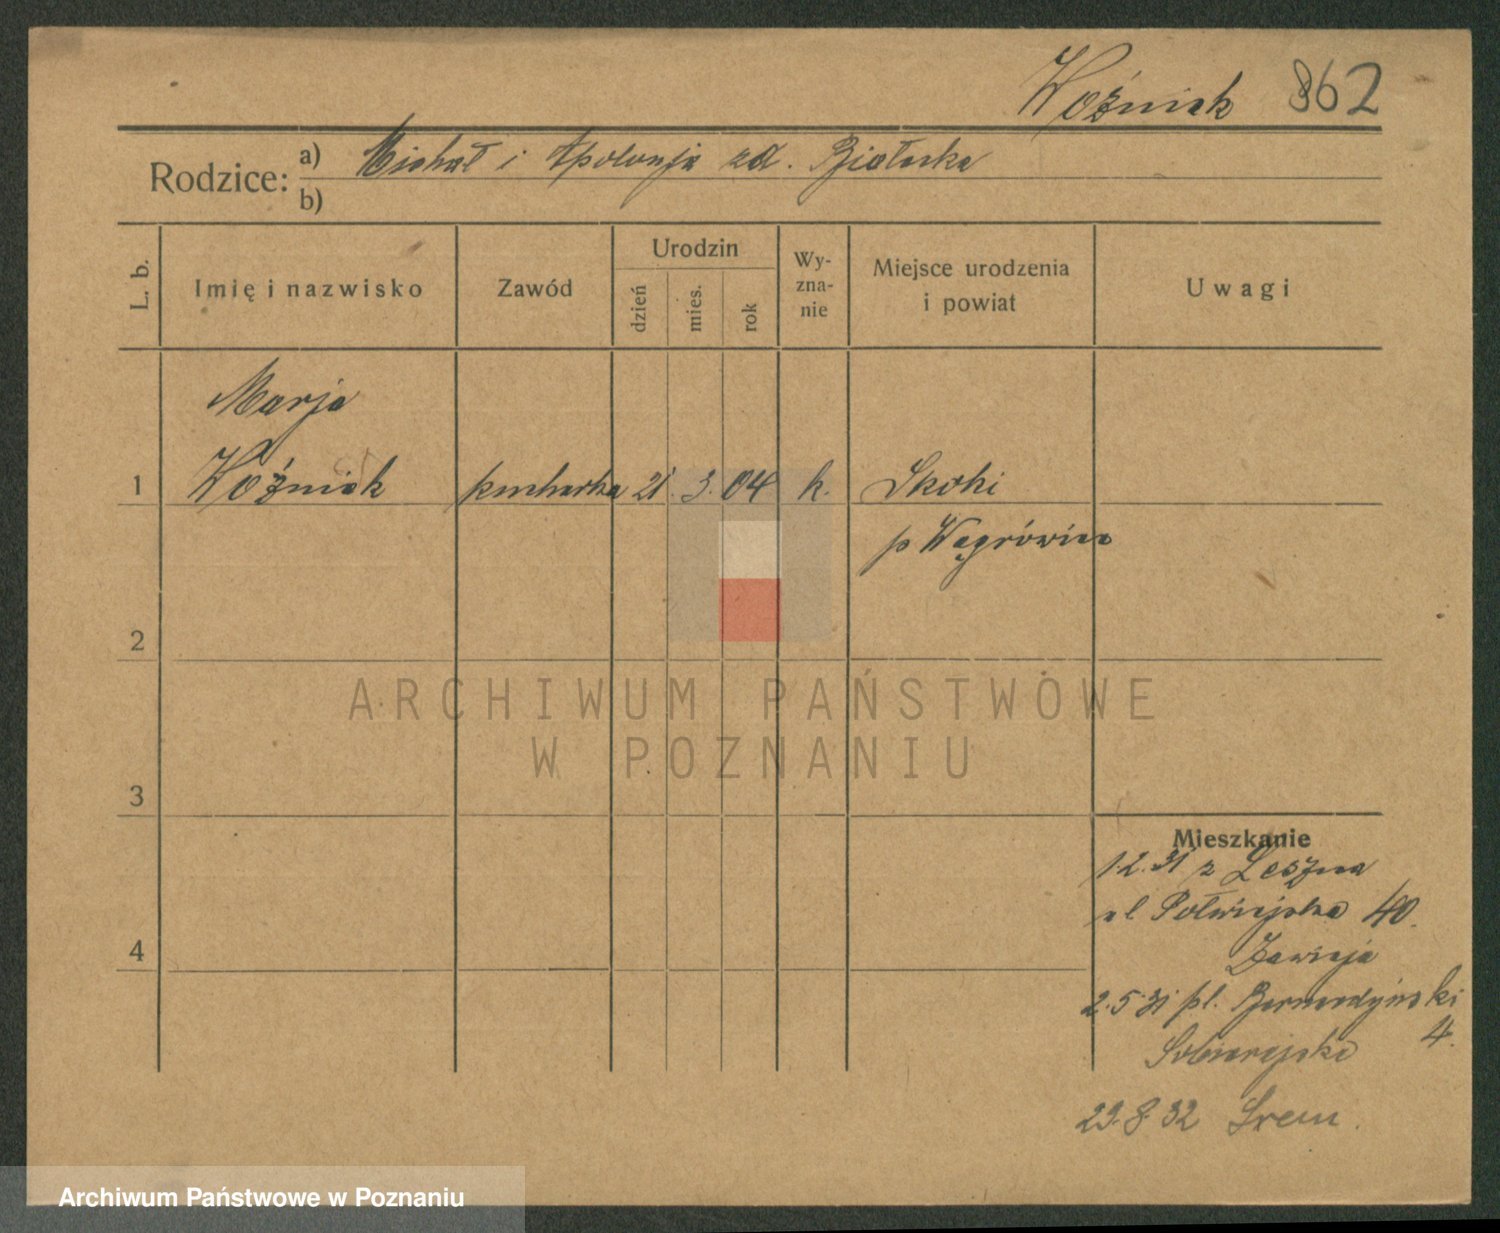 Woźniak 862
Rodzice: a) Michał i Apolonja zd. Białecka
b)
L. b.
Imię i nazwisko
Zawód
Urodzin
dzień
mies.
rok
Wy-
zna-
nie
Miejsce urodzenia
i powiat
Uwagi
Marja
1 Woźniak kucharka 21. 3. 04 k. Skoki
p Wągrówiec
2
3
4
Mieszkanie
1.2.31 z Leszna
ul Półwiejska 40.
Zawieja
2.5.31 pl. Bernardyński
4.
29.8.32 Śrem.
ARCHIWUM PAŃSTWOWE
W POZNANIU
Archiwum Państwowe w Poznaniu